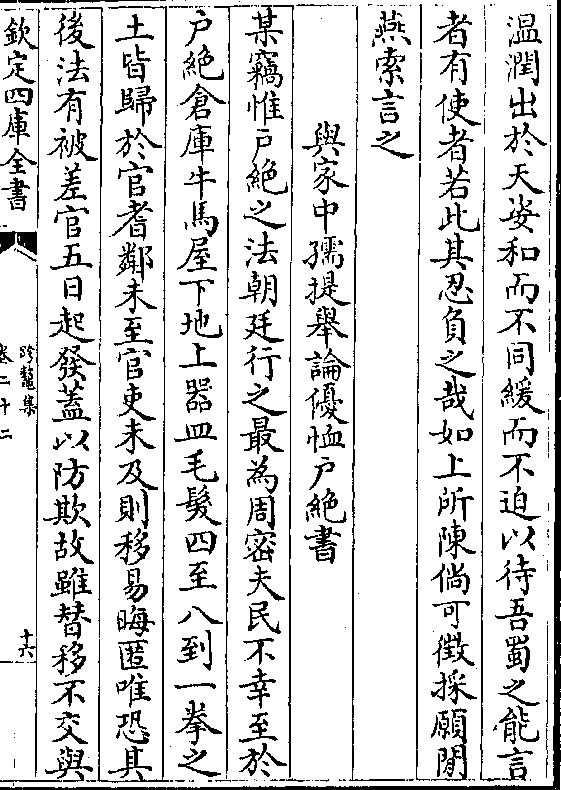 温潤出於天姿和而不同緩而不迫以待吾蜀之能言
者有使者若此其忍負之哉如上所陳倘可徴採願閒
燕索言之
與家中孺提舉論優恤户絶書
某竊惟户絶之法朝廷行之最為周密夫民不幸至於
户絶倉庫牛馬屋下地上器皿毛髮四至八到一拳之
土皆歸於官耆鄰未至官吏未及則移易晦匿唯恐其
後法有被差官五日起發蓋以防欺故雖替移不交與
欽定四庫全書
跨鼇集
卷二十二
十六